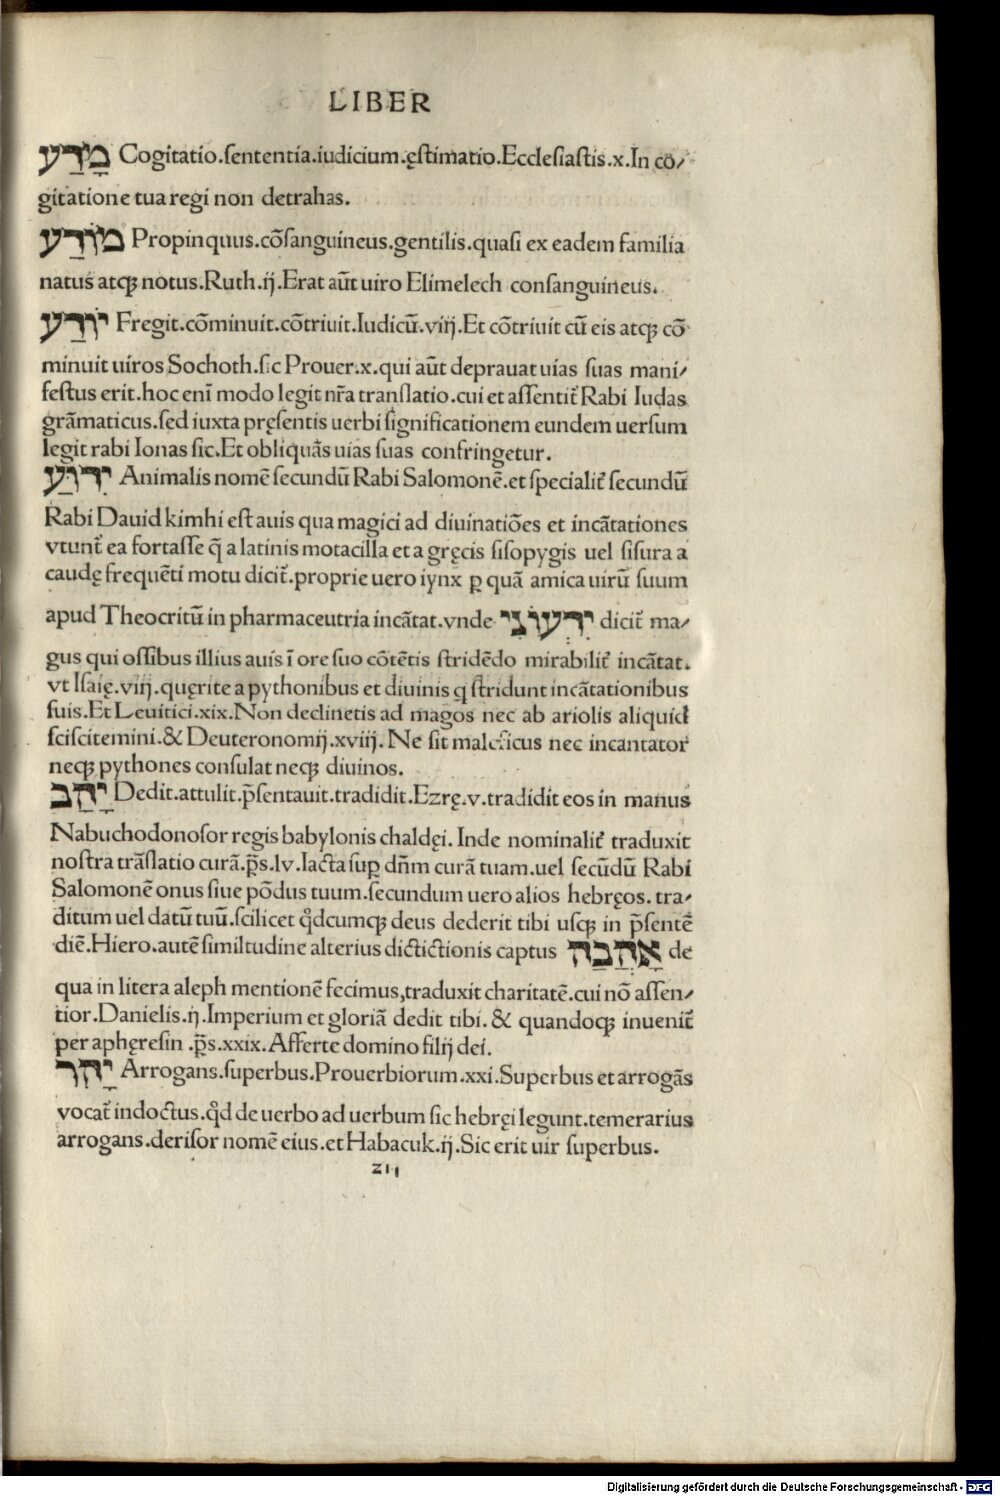 LIBER
מָדַּע Cogitatio.sententia.iudicium.ęstimatio.Ecclesiastis.x.In co⸗
gitatione tua regi non detrahas.
מוֹדַע Propinquus.cõsanguineus.gentilis.quasi ex eadem familia
natus atqꝫ notus.Ruth.ij.Erat aũt uiro Elimelech consanguineus.
יוֹדַע Fregit.cõminuit.cõtriuit.Iudicũ.viij.Et cõtriuit cũ eis atqꝫ cõ
minuit uiros Sochoth.sic Prouer.x.qui aũt deprauat uias suas mani⸗
festus erit.hoc enĩ modo legit nr̃a translatio.cui et assentit᷑ Rabi Iudas
grãmaticus.sed iuxta pręsentis uerbi significationem eundem uersum
legit rabi Ionas sic.Et obliquãs uias suas confringetur.
יִדּוֹעַ Animalis nomẽ secundũ Rabi Salomonẽ.et specialit᷑ secundũ
Rabi Dauid kimhi est auis qua magici ad diuinatiões et incãtationes
vtunt᷑ ea fortasse q̃ a latinis motacilla et a gręcis sisopygis uel sisura a
caudę frequẽti motu dicit᷑.proprie uero iynx ꝑ quã amica uirũ suum
apud Theocritũ in pharmaceutria incãtat.vnde יִדְּעוֹנִי dicit᷑ ma⸗
gus qui ossibus illius auis ĩ ore suo cõtẽtis stridẽdo mirabilit᷑ incãtat.
vt Isaię.viij.quęrite a pythonibus et diuinis q stridunt incãtationibus
suis.Et Leuitici.xix.Non declinetis ad magos nec ab ariolis aliquid
sciscitemini.& Deuteronomij.xviij. Ne sit maleficus nec incantator
neqꝫ pythones consulat neqꝫ diuinos.
יָהַב Dedit.attulit.p̃sentauit.tradidit.Ezrę.v.tradidit eos in manus
Nabuchodonosor regis babylonis chaldęi. Inde nominalit᷑ traduxit
nostra trãslatio curã.p̃s.lv.Iacta suꝑ dñm curã tuam.uel secũdũ Rabi
Salomonẽ onus siue põdus tuum.secundum uero alios hebręos. tra⸗
ditum uel datũ tuũ.scilicet q̊dcumqꝫ deus dederit tibi usqꝫ in p̃sentẽ
diẽ.Hiero.autẽ similtudine alterius dictictionis captus אָהַבָה de
qua in litera aleph mentionẽ fecimus,traduxit charitatẽ.cui nõ assen⸗
tior.Danielis.ij.Imperium et gloriã dedit tibi.& quandoqꝫ inuenit᷑
per aphęresin .p̃s.xxix.Afferte domino filij dei.
יָהִר Arrogans.superbus.Prouerbiorum.xxi.Superbus et arrogãs
vocat᷑ indoctus.q̊d de uerbo ad uerbum sic hebręi legunt.temerarius
arrogans.derisor nomẽ eius.et Habacuk.ij.Sic erit uir superbus.
zij
Digitalisierung gefördert durch die Deutsche Forschungsgemeinschaft - DFG